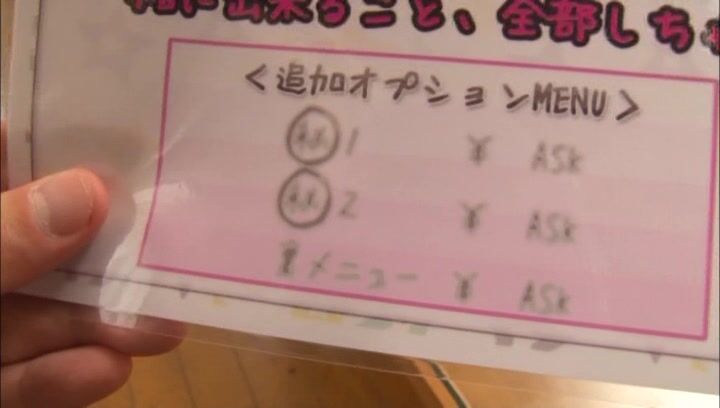 に出来ること、全部しちゃ
<追加オプションMENU>
㊙1 ¥ ASK
㊙2 ¥ ASK
裏メニュー ¥ ASK